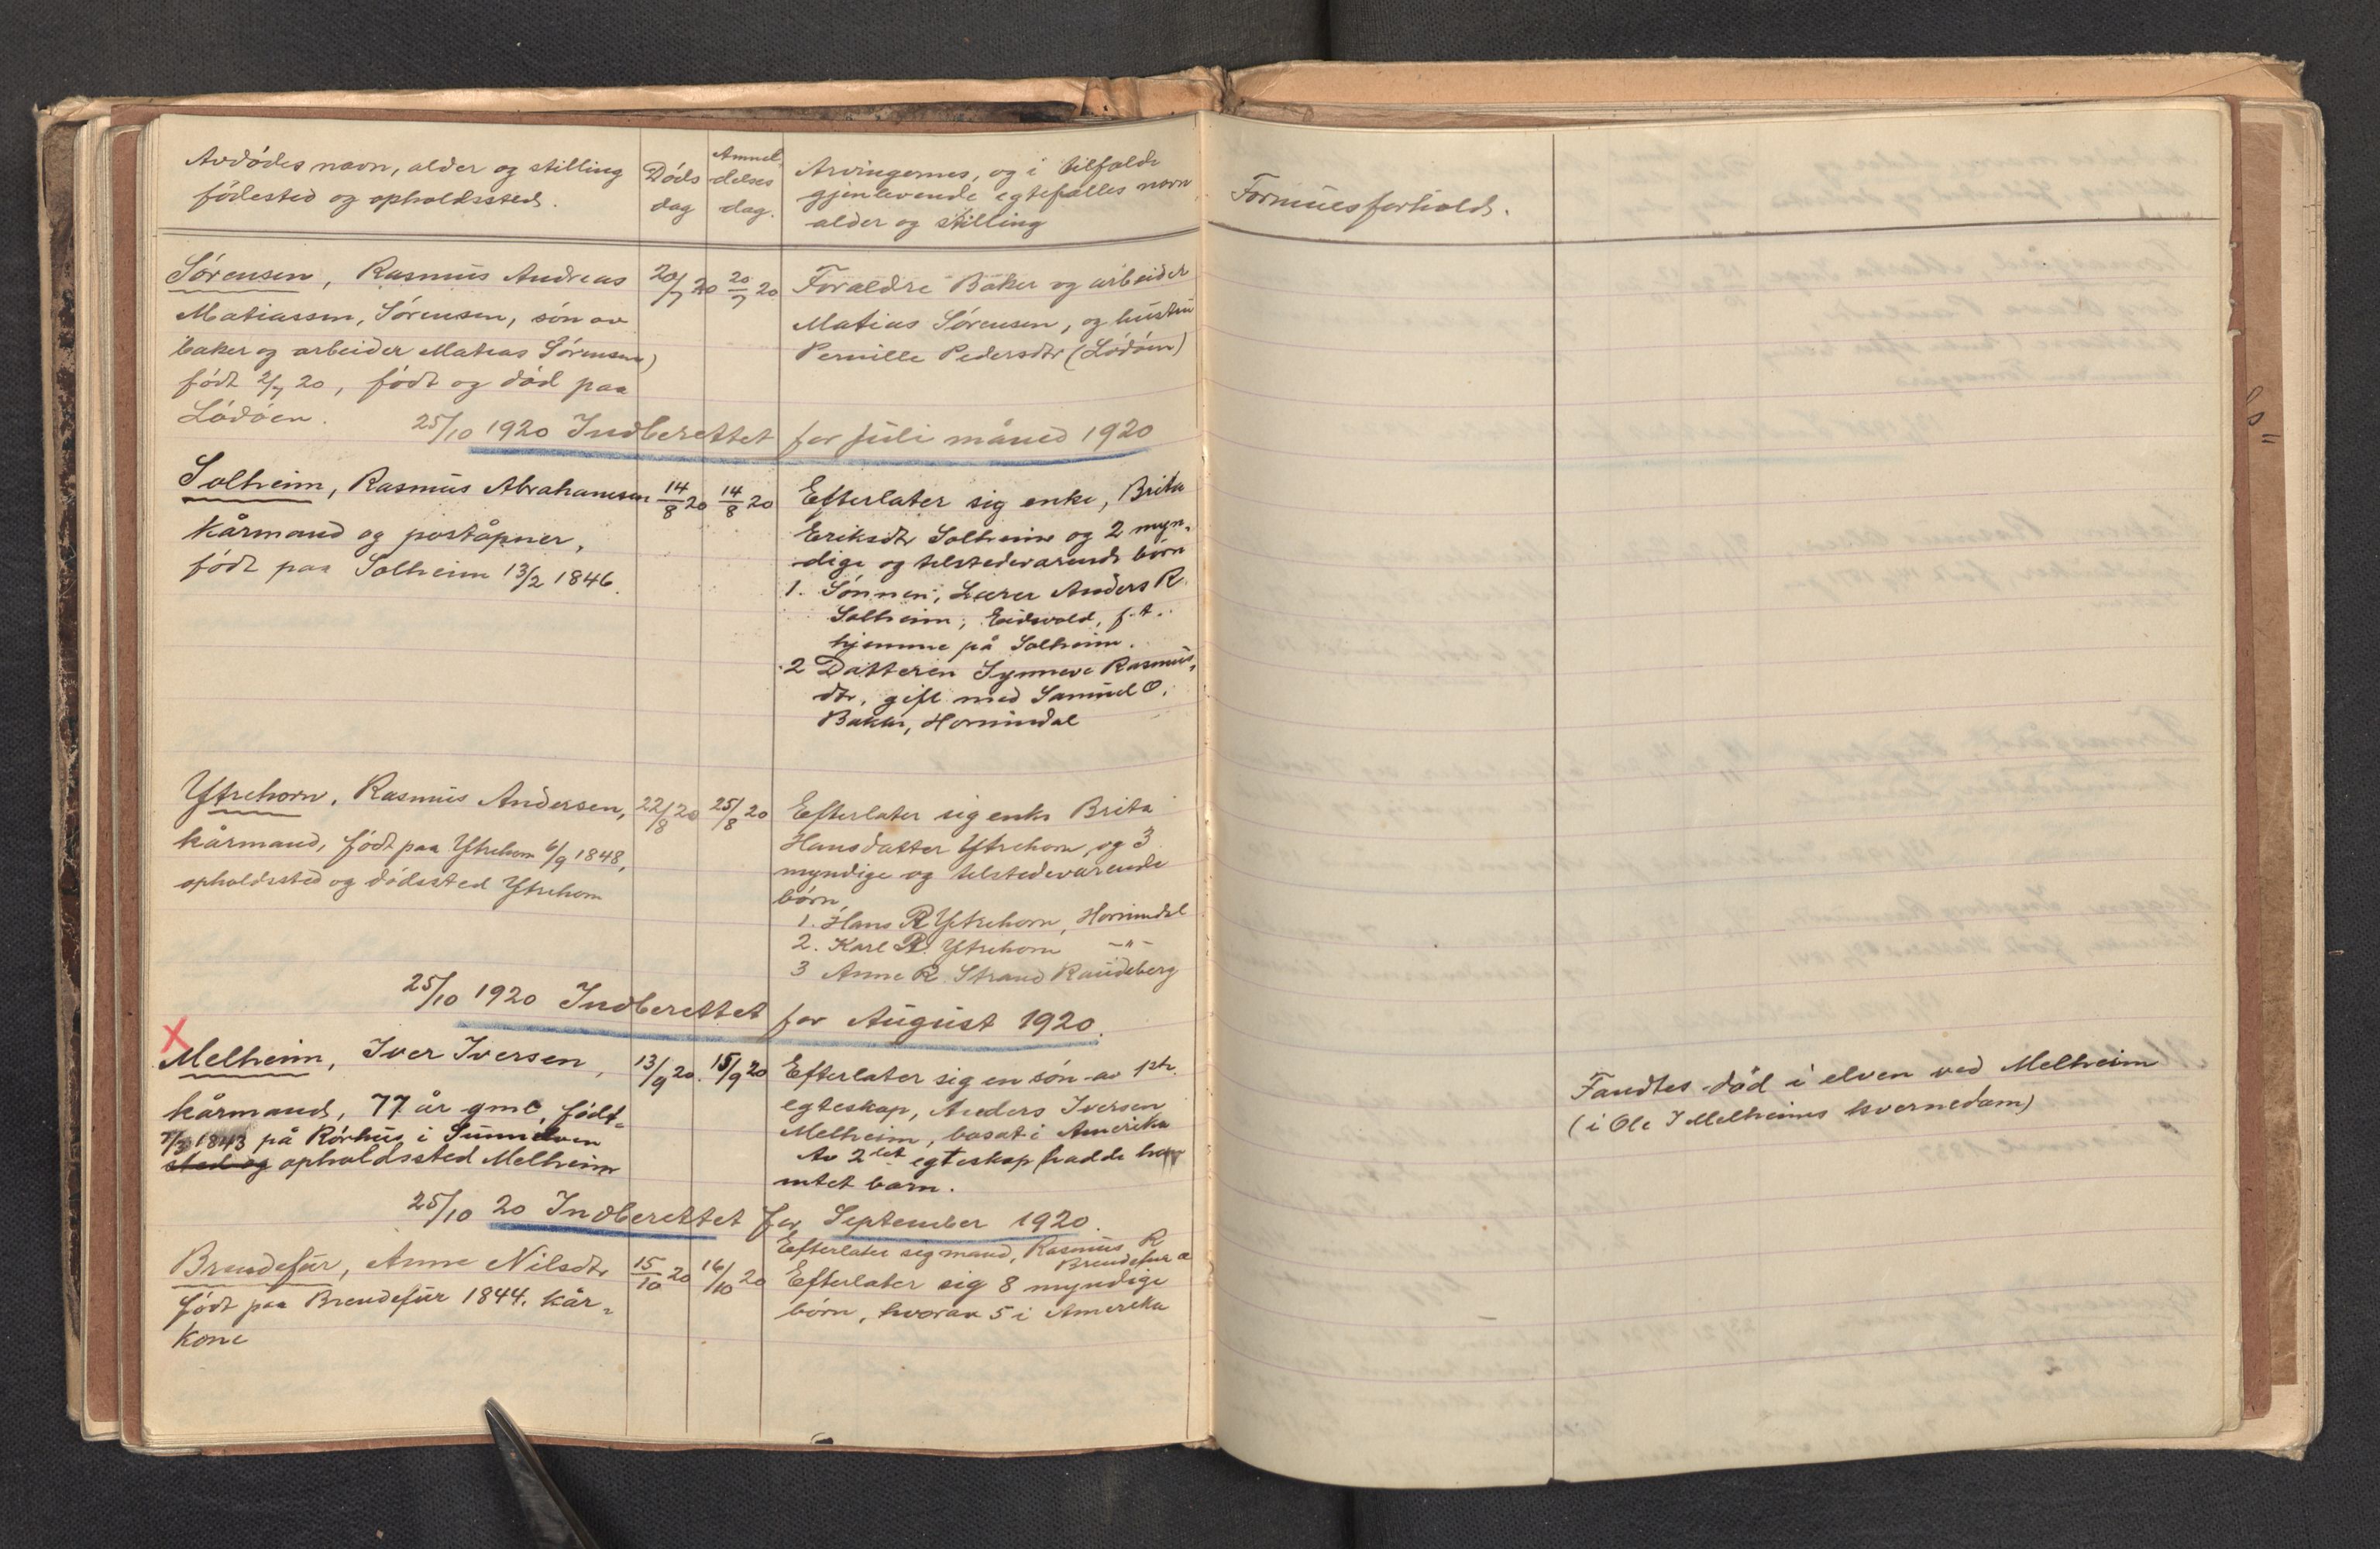 Avdødes navn, alder og stilling
fødested og opholdssted.
Døds
dag
Anmel-
delses
dag.
Arvingernes, og i tilfælde
gjenlevende egtefælles navn
alder og stilling
Formuesforhold.
Sørensen, Rasmus Andreas 20/7 20 20/7 20 Forældre Baker og arbeider
Matiassen, Sørensen, søn av Matias Sørensen, og hustru
baker og arbeider Matias Sørensen) Pernille Pedersdtr (Lødøen)
født 2/7 20, født og død paa
Lødøen.
25/10 1920 Indberettet for juli måned 1920
Solheim, Rasmus Abrahamsen 14/8 20 14/8 20 Efterlater sig enke, Brita
kårmand og poståpner, Eriksdtr Solheim og 2 myn-
født paa Solheim 13/2 1846. dige og tilstedevarende børn
1. Sønnen, Lærer Anders R.
Solheim, Eidsvold, f.t.
hjemme på Solheim.
2 Datteren Synneve Rasmus-
dtr, gift med Samuel O.
Bakke, Hornindal
Ytrehorn, Rasmus Andersen, 22/8 20 25/8 20 Efterlater sig enke Brita
kårmand, født paa Ytrehorn 6/9 1848, Hansdatter Ytrehorn, og 3
opholdssted og dødssted Ytrehorn myndige og tilstedevarende
børn,
1. Hans R Ytrehorn, Hornindal
2. Karl R. Ytrehorn -"-
3 Anne R. Strand Raudeberg
25/10 1920 Indberettet for August 1920.
X
Melheim, Iver Iversen, 13/9 20. 15/9 20 Efterlater sig en søn av 1ste.
kårmand, 77 år gml, født- egteskap, Anders Iversen
1843 på Rørhus i Sunnelven Melheim, bosat i Amerika
sted og opholdssted Melheim Av 2det egteskap hadde han
intet barn.
Fandtes død i elven ved Melheim
(i Ole I Melheims kvernedam)
25/10 20 Indberettet for September 1920.
Efterlater sig mand, Rasmus R
Brendefur
Brendefur, Anne Nilsdtr 15/10 20 16/10 20 Efterlater sig 8 myndige
født paa Brendefur 1844. kår- børn, hvorav 5 i Amerika
kone